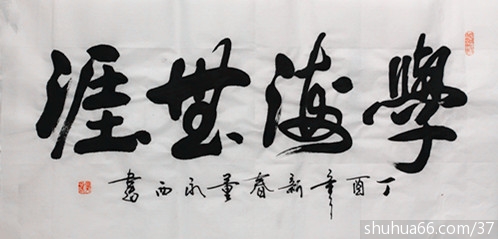 學海無涯
丁酉年新春量永西書
shuhua66.com/37